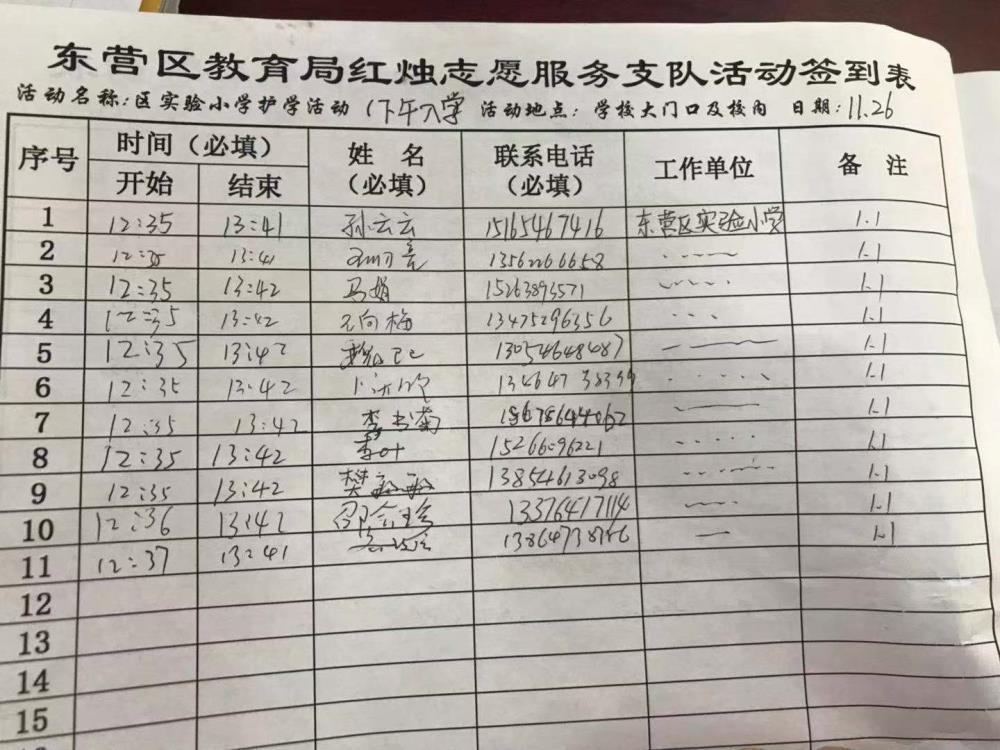 东营区教育局红烛志愿服务支队活动签到表
活动名称:区实验小学护学活动(下午入学 活动地点:学校大门口及校内 日期:11.26
序号 时间(必填) 姓名(必填) 联系电话(必填) 工作单位 备注
开始 结束
1 12:35 13:41 孙云云 15165467416 东营区实验小学 1.1
2 12:35 13:41 13562266658 1.1
3 12:35 13:42 马娟 15263893571 1.1
4 12:35 13:42 王向梅 13475296356 1.1
5 12:35 13:42 13054648487 1.1
6 12:35 13:42 13464738399 1.1
7 12:35 13:42 李书菊 15678644062 1.1
8 12:35 13:42 李叶 15266096221 1.1
9 12:35 13:42 樊 13854613098 1.1
10 12:36 13:42 邵 13376417114 1.1
11 12:37 13:41 1.1
12
13
14
15